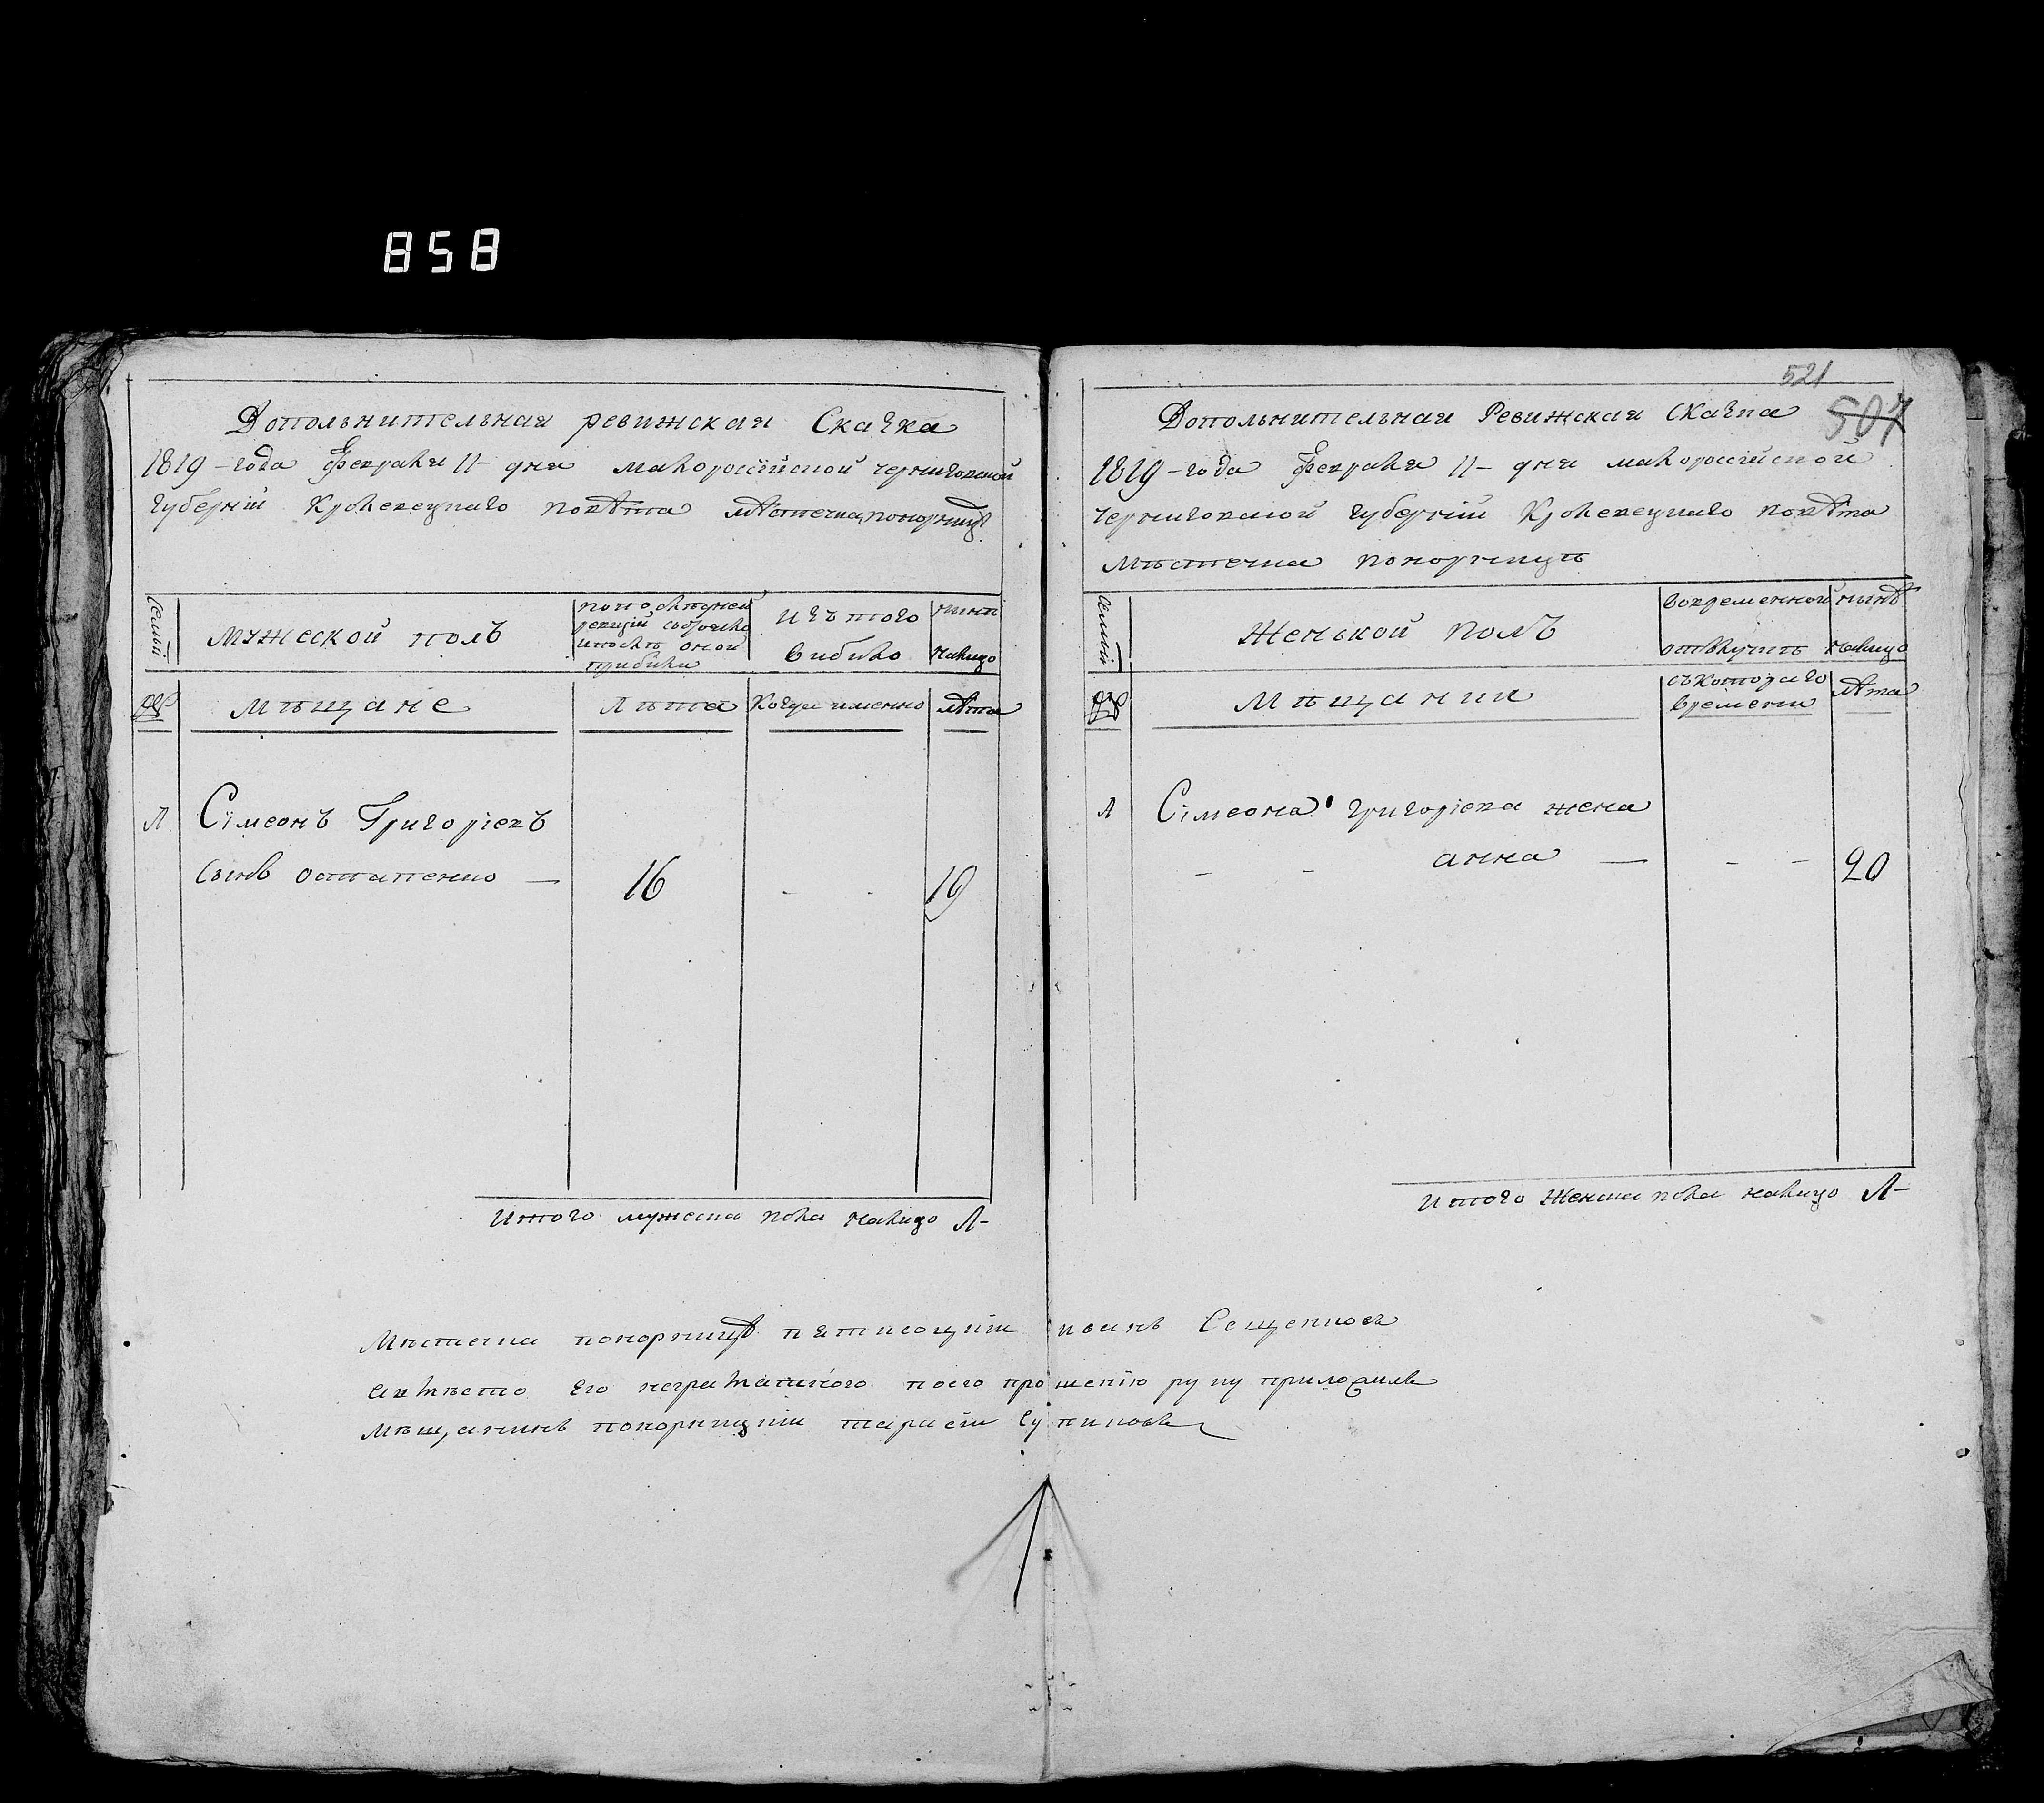 858
Допольнительная ревижская Скаска
1819-года февраля 11-дня малороссійской черниговской
губерній Кролевецкаго повѣта мѣстечка понорницѣ
Семьи
мужеской полъ
попослѣдней
ревизій состояло
ипослѣ оной
прибили
изъ того
вибило
нинѣ
налицо
№
мѣщане
лѣта
Когда именно
лѣта
1
Сімеонъ Григоріевъ
Сынъ остапенко —
16
- -
19
Итого мужеска пола налицо 1-
521
507
Дополнительная Ревижская Скаска
1819-года февраля 11-дня малороссійской
черниговской губерній Кролевецкаго повѣта
мѣстечка понорницѣ
Семьи
Женьской полъ
вовременной
отлучкѣ
нынѣ
налицо
№
Мѣщанки
съкотораго
времени
лѣта
1
Сімеона григоріева жена
- - анна —
- -
20
Итого женска пола налицо 1-
Мѣстечка понорницѣ иванъ
его неграмотного поего прошенію руку приложилъ
мѣщанинъ понорницкій тарасій